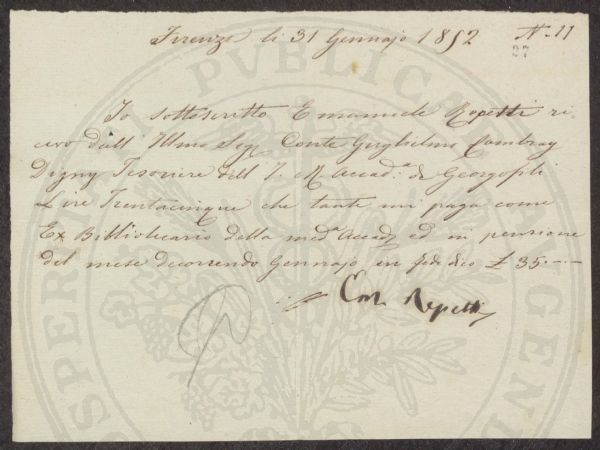 Firenze li 31 Gennajo 1852 N. 11
27
Io sottoscritto Emanuele Repetti ri-
cevo dall Illmo Sig Conte Guglielmo Cambray
Digny Tesoriere dell I. R. Accad.a de Georgofili
Lire Trentacinque che tante mi paga come
Ex Bibliotecario della meda Accad ed in pensione
del mese decorrendo Gennajo in fede dico £ 35.---
Em. Repetti
PROSPERITATI PUBLICAE AUGENDAE